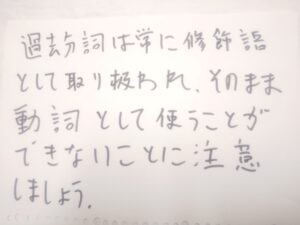 過去分詞は常に修飾語
として取り扱われ、そのまま
動詞として使うことが
できないことに注意
しましょう.